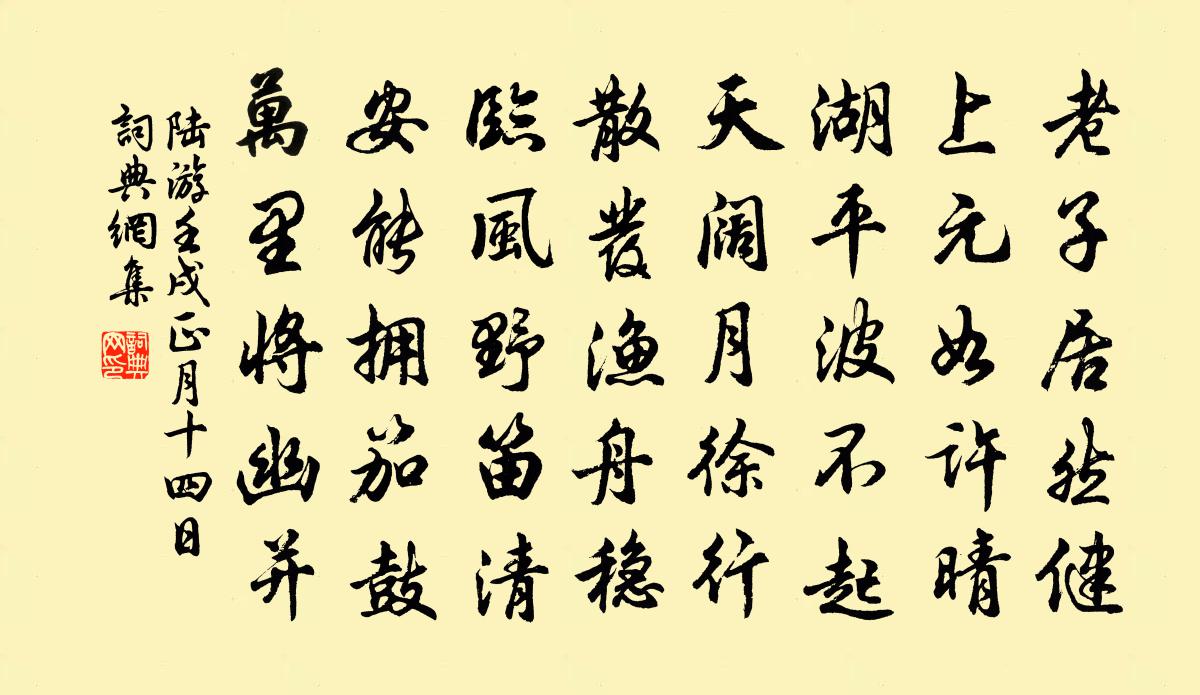 老子居然健
上元如許晴
湖平波不起
天闊月徐行
散發漁舟穩
臨風野笛清
安能擁笳鼓
萬里將幽并
陸游壬戌正月十四日
詞典網集
詞典网印